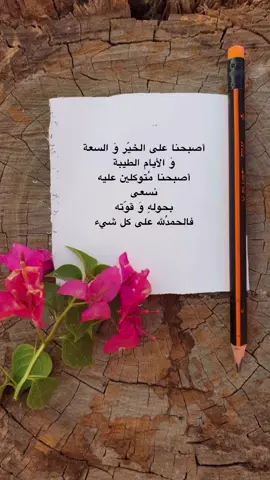 أصبحنا على الخير وَ السعة
وَ الأيام الطيبة
أصبحنا مُتوكلين عليه
نسعى
بحولهِ وَ قوّته
فالحمدُلله على كل شيء